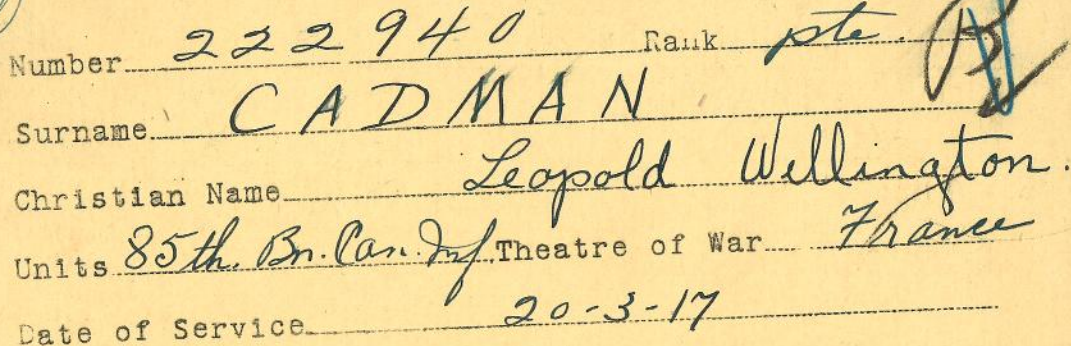 Number 222940 Rank pte.
Surname CADMAN
Christian Name Leopold Wellington.
Units 85th. Bn. Can. Inf. Theatre of War France
Date of Service 20-3-17